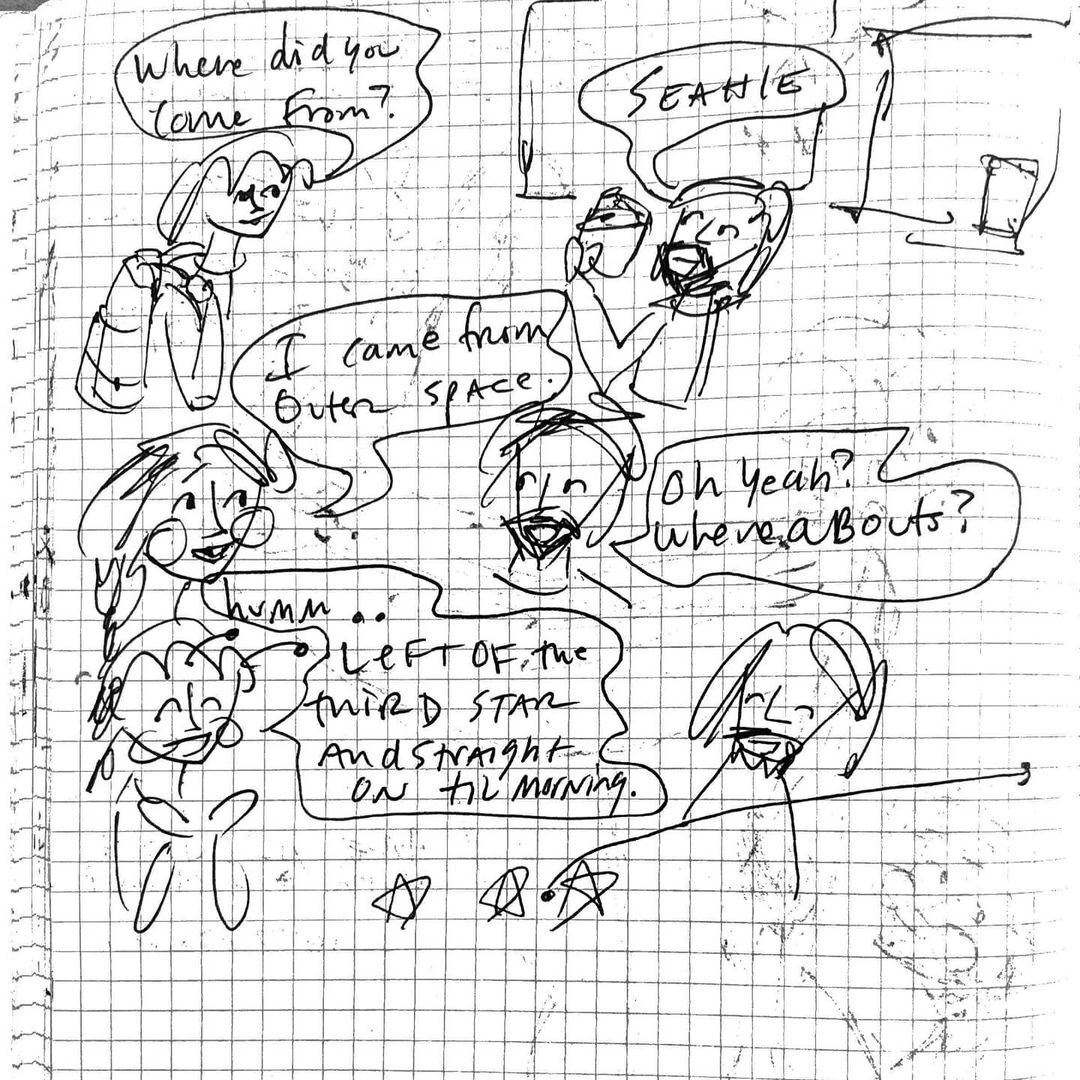 Where did you
come from?
SEATTLE
I came from
Outer space.
Oh yeah?
whereaBouts?
humm..
LeFT OF the
thiRD STAR
And straight
ON til morning.